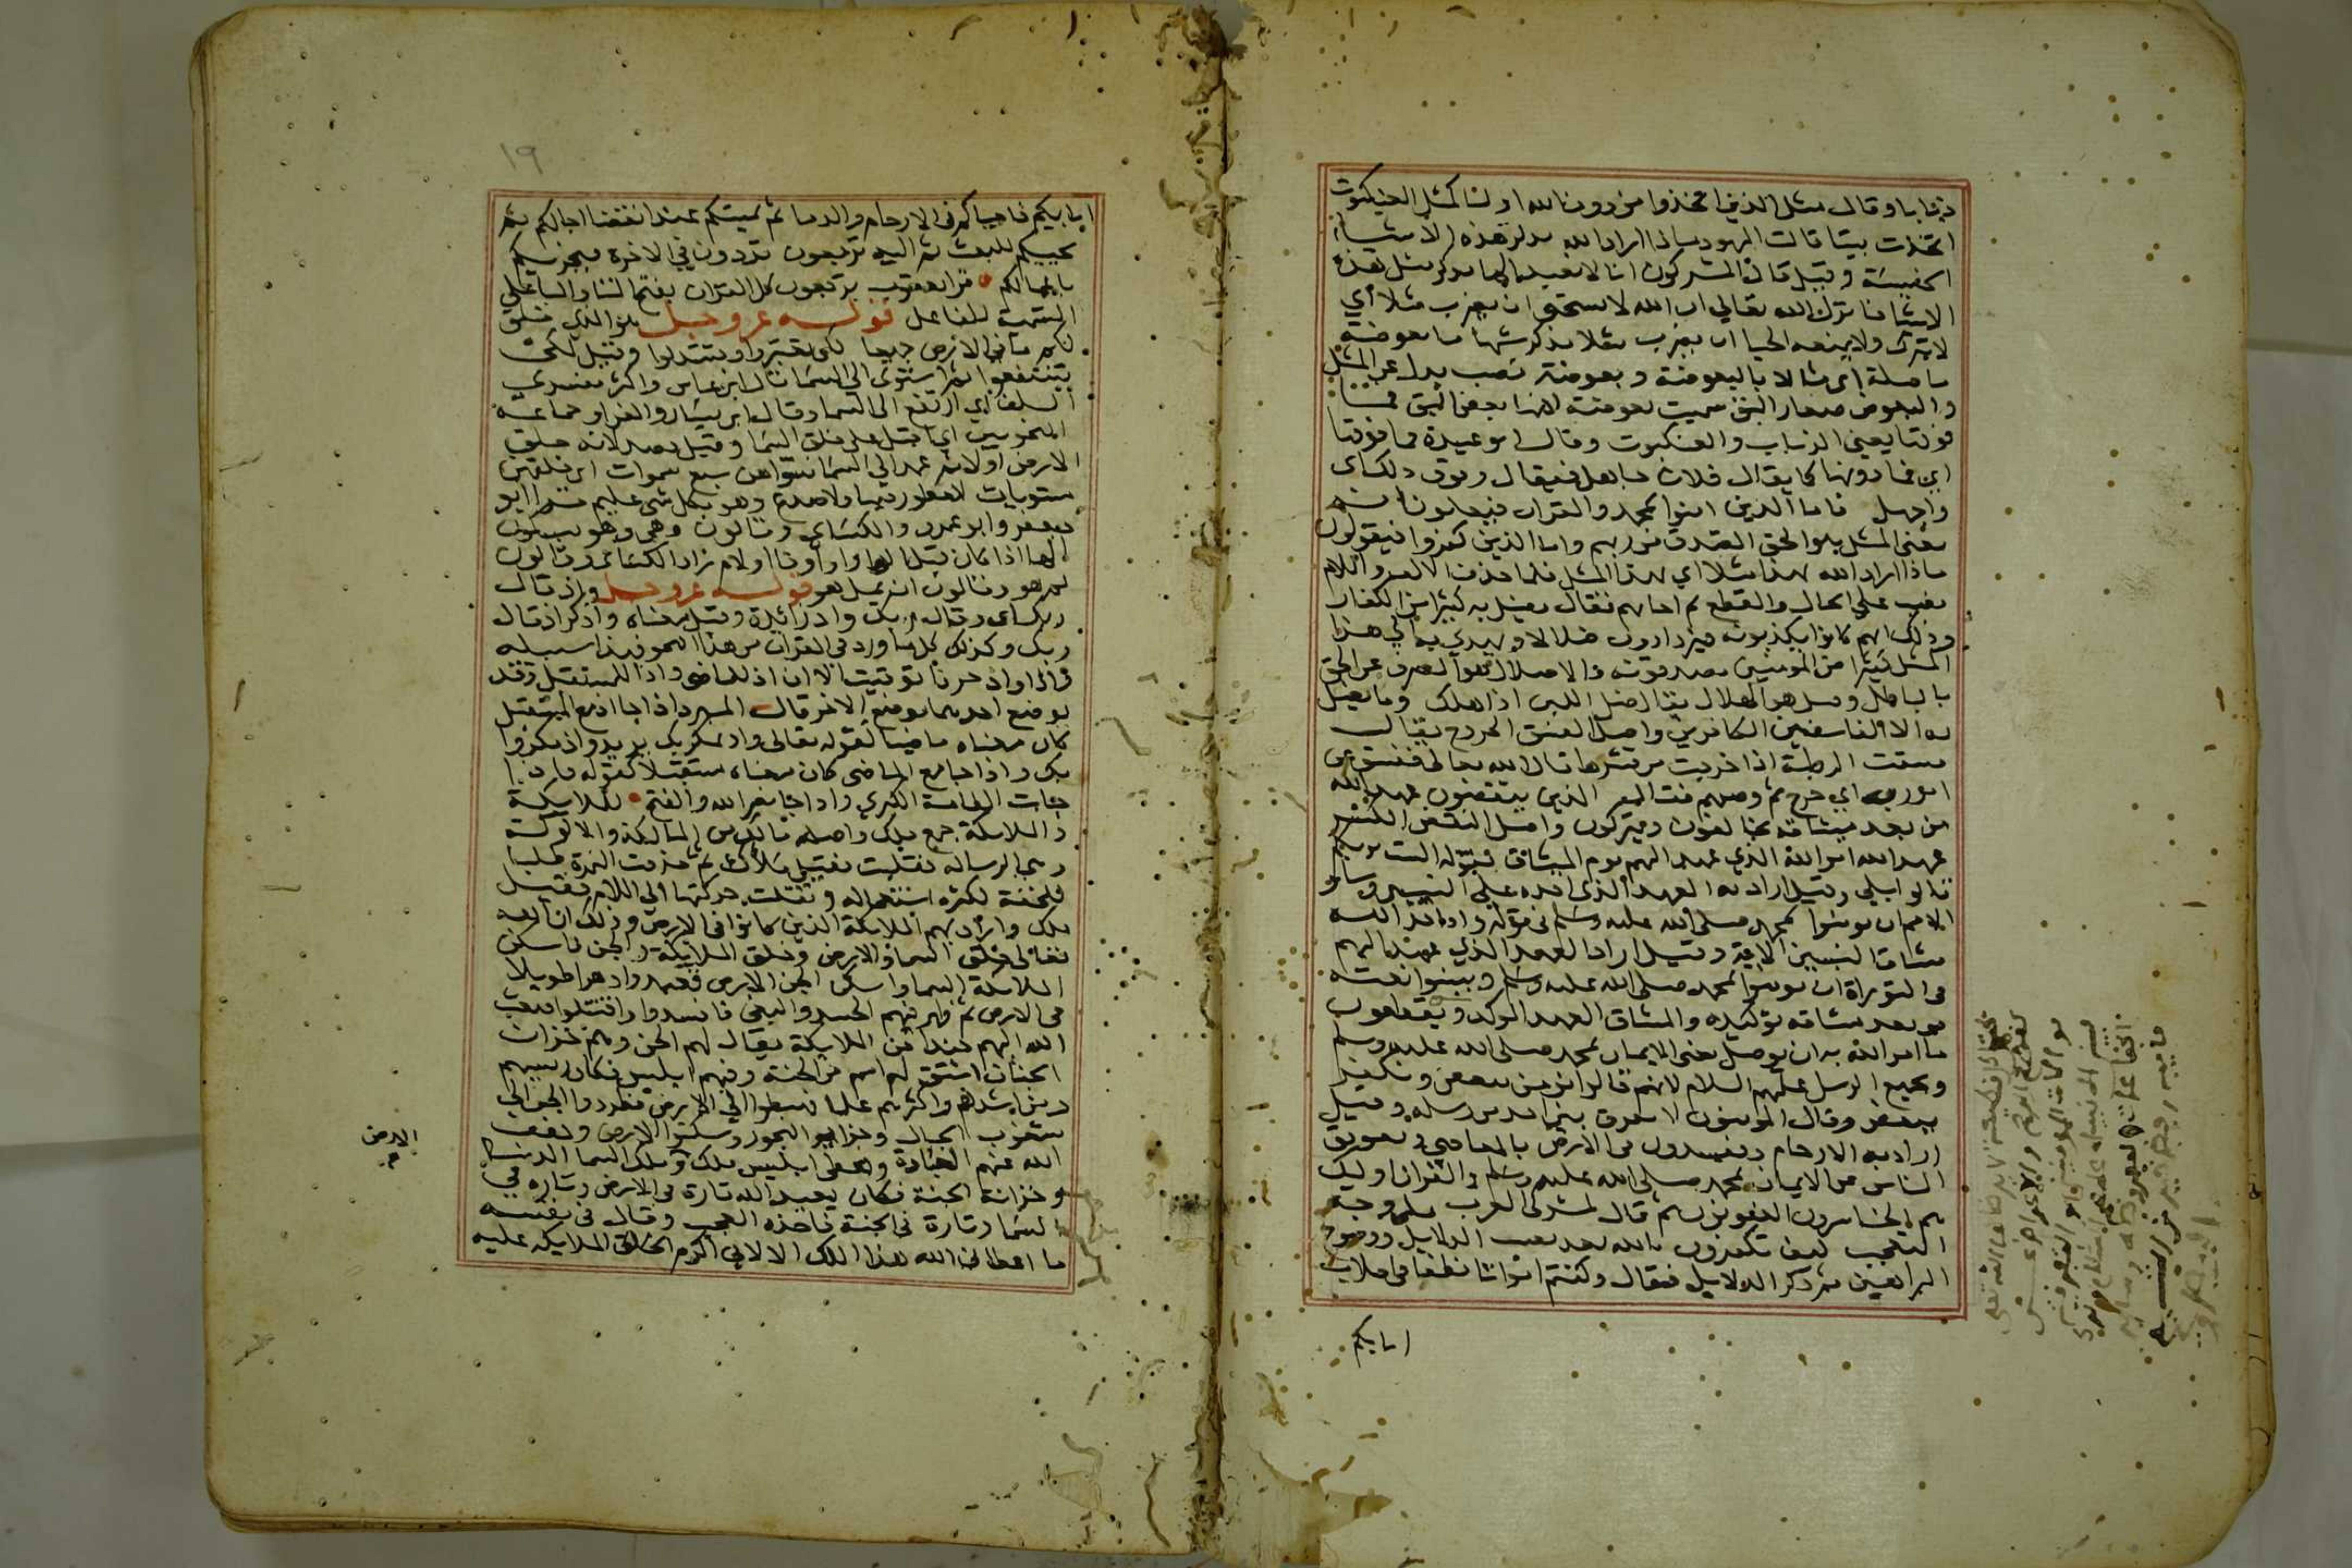 ذبابا وقال مثل الذين اتخذوا من دون الله اوليا كمثل العنكبوت
اتخذت بيتا قالت اليهود ماذا اراد الله بذكر هذه الاشياء
الخسيسة وقيل قال المشركون انا لا نعبد الها يذكر مثل هذه
الاشيا فانزل الله تعالى ان الله لا يستحي ان يضرب مثلا أي
لا يترك ولا يمنعه الحيا ان يضرب مثلا يذكر شبها ما بعوضة
ما صلة اي مثلا بالبعوضة وبعوضة نصب بدل عن المثل
والبعوض صغار البق سميت بعوضة لانها بعض البق فما
فوقها يعني الذباب والعنكبوت وقال ابو عبيدة فما فوقها
اي فما دونها كما يقال فلان جاهل فيقال وفوق ذلك اي
واجهل فاما الذين امنوا بمحمد والقران فيعلمون انه
يعني المثل هو الحق الصدق من ربهم واما الذين كفروا فيقولون
ماذا اراد الله بهذا مثلا اي بهذا المثل فلما حذف الالف واللام
نصب على الحال والقطع ثم اجابهم فقال يضل به كثيرا من الكفار
وذلك انهم كانوا يكذبونه فيزدادون ضلالا ويهدي به اي هذا
المثل كثيرا من المومنين يصدقونه والاضلال هو الصرف عن الحق
بالباطل وقيل هو الهلاك يقال ضل اللبن اذا هلك وما يضل
به الا الفاسقين الكافرين واصل الفسق الخروج يقال
فسقت الرطبة اذا خرجت من قشرها قال الله تعالى ففسق عن
امر ربه اي خرج ثم وصفهم فقال الذين ينقضون عهد الله
من بعد ميثاقه يخالفون ويتركون واصل النقض الكسر
عهد الله امر الله الذي عهد اليهم يوم الميثاق بقوله الست بربكم
قالوا بلى وقيل اراد به العهد الذي اخذه على النبيين وسائر
الامم ان يومنوا بمحمد صلى الله عليه وسلم في قوله واذ اخذ الله
ميثاق النبيين الاية وقيل اراد العهد الذي عهد اليهم
في التوراة ان يومنوا بمحمد صلى الله عليه وسلم ويبينوا نعته
من بعد ميثاقه توكيده والميثاق العهد الموكد ويقطعون
ما امر الله به ان يوصل يعني الايمان بمحمد صلى الله عليه وسلم
وبجميع الرسل عليهم السلام لانهم قالوا نومن ببعض ونكفر
ببعض وقال المومنون لا نفرق بين احد من رسله وقيل
اراد به الارحام ويفسدون في الارض بالمعاصي وتعويق
الناس عن الايمان بمحمد صلى الله عليه وسلم والقران اوليك
هم الخاسرون المغبونون ثم قال لمشركي العرب على وجه
التعجب كيف تكفرون بالله بعد نصب الدلايل ووضوح
البراهين ثم ذكر الدلايل فقال وكنتم امواتا نطفا في اصلاب
ابايكم
١٩
ابايكم فاحياكم في الارحام والدنيا ثم يميتكم عند انقضا اجالكم ثم
يحييكم للبعث ثم اليه ترجعون تردون في الاخرة فيجزيكم
باعمالكم قرا يعقوب ترجعون كل القران بفتح التا واليا على
التسمية للفاعل قوله عز وجل هو الذي خلق
لكم ما في الارض جميعا لكي تعتبروا وتستدلوا وقيل لكي
تنتفعوا ثم استوى الى السما قال ابن عباس واكثر مفسري
السلف اي ارتفع الى السما وقال ابن كيسان والفرا وجماعة
النحويين اي اقبل على خلق السما وقيل قصد لانه خلق
الارض اولا ثم عمد الى السما فسواهن سبع سموات اي خلقهن
مستويات لا فطور فيها ولا صدع وهو بكل شي عليم قرا ابو
جعفر وابو عمرو والكساي وقالون وهي وهو بسكون
الها اذا كان قبل الها واو او فا او لام زاد الكساي وقالون
ثم هو وقالون ان يمل هو قوله عز وجل واذ قال
ربك اي وقال ربك واذ زائدة وقيل معناه واذكر اذ قال
ربك وكذلك كل ما ورد في القران من هذا النحو فهذا سبيله
واذا واذ حرفا توقيت الا ان اذ للماضي واذا للمستقبل وقد
يوضع احدهما موضع الاخر قال المبرد اذا جا اذ مع المستقبل
كان معناه ماضيا لقوله تعالى واذ يمكر بك يريد واذ مكروا
بك واذا جا مع الماضي كان معناه مستقبلا كقوله فاذا
جات الطامة الكبرى واذا جا نصر الله والفتح للملايكة
والملايكة جمع ملك واصله مالك من المالكة والالوكة
وهي الرسالة فقلبت فقيل ملأك ثم حذفت الهمزة طلبا
للخفة لكثرة استعماله ونقلت حركتها الى اللام فقيل
ملك واراد بهم الملايكة الذين كانوا في الارض وذلك ان الله
تعالى خلق السما والارض وخلق الملايكة والجن فاسكن
الملايكة السما واسكن الجن الارض فعبدوا دهرا طويلا
في الارض ثم ظهر فيهم الحسد والبغي فافسدوا واقتتلوا فبعث
الله اليهم جندا من الملايكة يقال لهم الجن وهم خزان
الجنان اشتق لهم اسم من الجنة وفيهم ابليس فكان رييسهم
ومن اشدهم واكثرهم علما فهبطوا الى الارض فطردوا الجن الى
شعوب الجبال وجزاير البحور وسكنوا الارض وخفف
الله عنهم العبادة واعطى ابليس ملك وملك السما الدنيا
وخزانة الجنة فكان يعبد الله تارة في الارض وتارة في
السما وتارة في الجنة فاخذه العجب وقال في نفسه
ما اعطاني الله هذا الملك الا لاني اكرم الخلق الملايكة عليه
الارض